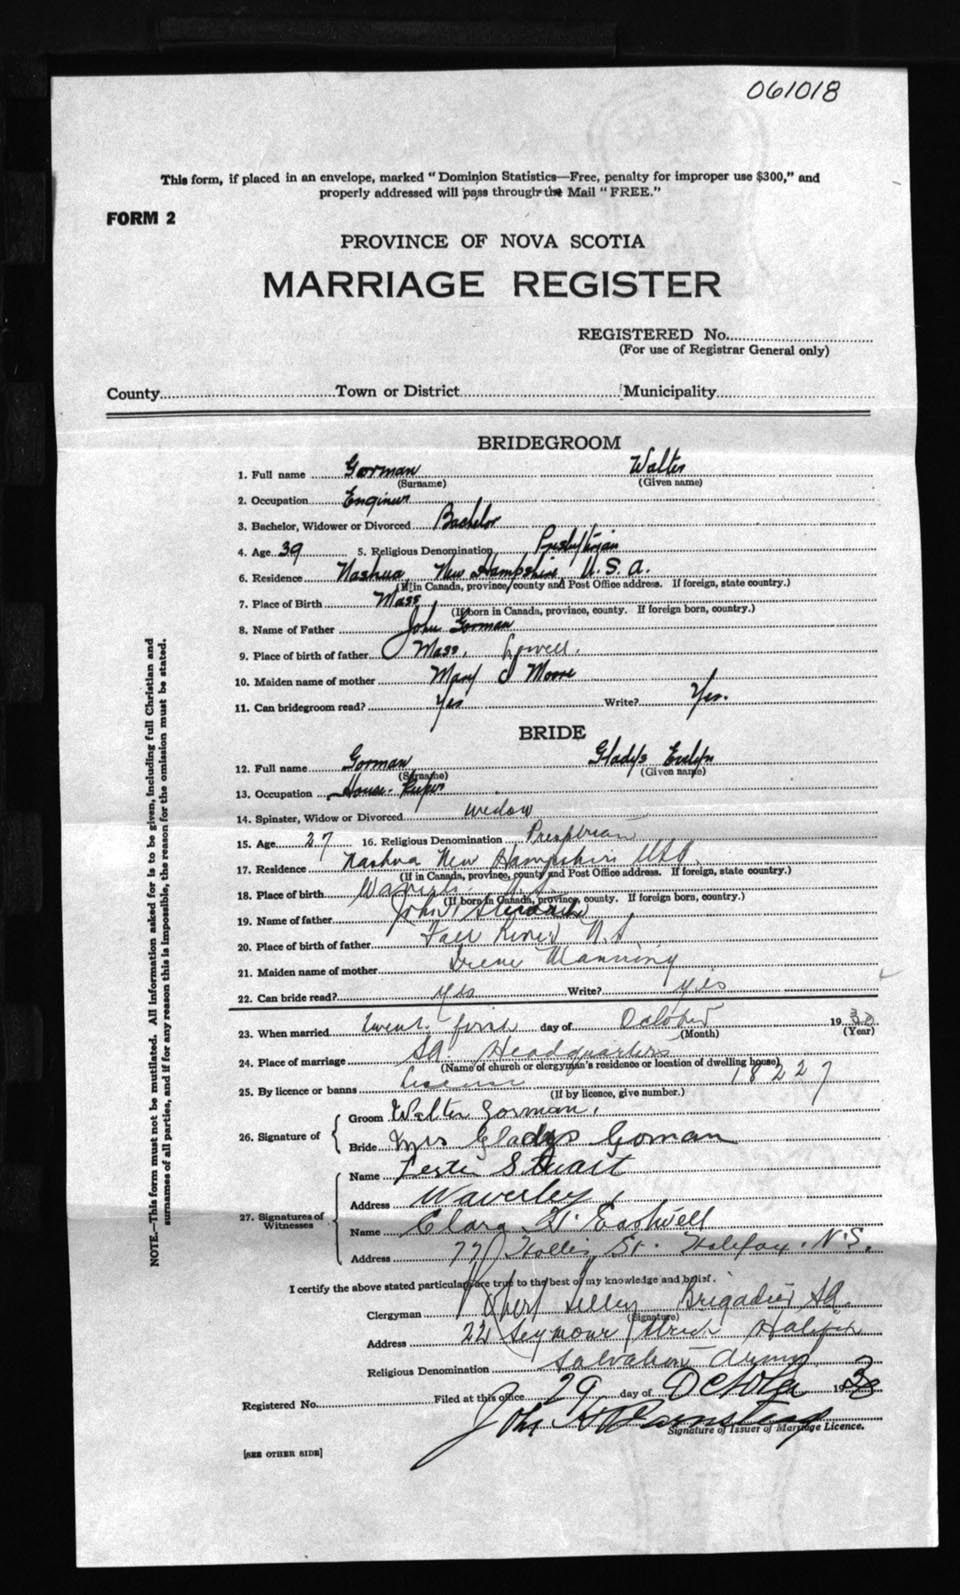 061018
This form, if placed in an envelope, marked "Dominion Statistics—Free, penalty for improper use $300," and
properly addressed will pass through the Mail "FREE."
FORM 2
PROVINCE OF NOVA SCOTIA
MARRIAGE REGISTER
REGISTERED No.
(For use of Registrar General only)
County Town or District Municipality
BRIDEGROOM
1. Full name Gorman Walter
(Surname) (Given name)
2. Occupation Engineer
3. Bachelor, Widower or Divorced Bachelor
4. Age 39 5. Religious Denomination Presbyterian
6. Residence Nashua, New Hampshire U.S.A.
(If in Canada, province, county and Post Office address. If foreign, state country.)
7. Place of Birth Mass
(If born in Canada, province, county. If foreign born, country.)
8. Name of Father John Gorman
9. Place of birth of father Mass. Lowell.
10. Maiden name of mother Mary J Moore
11. Can bridegroom read? Yes Write? Yes.
BRIDE
12. Full name Gorman Gladys Evelyn
(Surname) (Given name)
13. Occupation House-Keeper
14. Spinster, Widow or Divorced Widow
15. Age 27 16. Religious Denomination
17. Residence Nashua New Hampshire USA.
(If in Canada, province, county and Post Office address. If foreign, state country.)
18. Place of birth N.S.
(If born in Canada, province, county. If foreign born, country.)
19. Name of father John
20. Place of birth of father Fall River N.S.
21. Maiden name of mother Irene Manning
22. Can bride read? yes Write? yes
23. When married day of October 1930
(Month) (Year)
24. Place of marriage SA. Headquarters
(Name of church or clergyman's residence or location of dwelling house)
25. By licence or banns license 18227
(If by licence, give number.)
26. Signature of Groom Walter Gorman.
Bride Mrs Gladys Goman
27. Signatures of Witnesses Name Lester Stuart
Address Waverley
Name Clara H. Eastwell
Address 77 Hollis St. Halifax. N.S.
I certify the above stated particulars are true to the best of my knowledge and belief.
Clergyman Tilley Brigadier SA.
(Signature)
Address 22 Seymour Street Halifax
Religious Denomination Salvation Army
Registered No. Filed at this office 29 day of October 1930
John
Signature of Issuer of Marriage Licence.
[SEE OTHER SIDE]
NOTE.—This form must not be mutilated. All information asked for is to be given, including full Christian and
surnames of all parties, and if for any reason this is impossible, the reason for the omission must be stated.